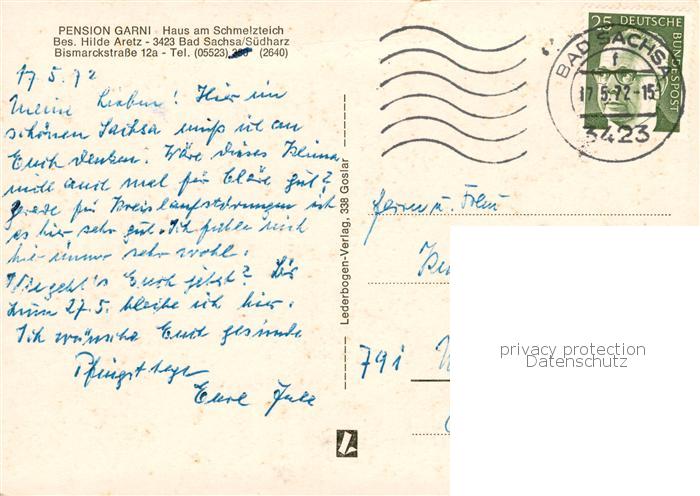 PENSION GARNI - Haus am Schmelzteich
Bes. Hilde Aretz - 3423 Bad Sachsa/Südharz
Bismarckstraße 12a - Tel. (05523) (2640)
17.5.72
Meine Lieben! Hier im
schönen Sachsa muß ich an
Euch denken. Wäre dieses Klima
nicht auch mal für Cläre gut?
gerade für Kreislaufstörungen ist
es hier sehr gut. Ich fühle mich
hier immer sehr wohl.
Wie geht's Euch jetzt? Bis
zum 27.5. bleibe ich hier.
Ich wünsche Euch gesunde
Pfingsttage
Eure
Lederbogen-Verlag, 338 Goslar
25 DEUTSCHE
BUNDESPOST
BAD SACHSA
f
17.5.72-15
3423
Herrn u. Frau
791
privacy protection
Datenschutz